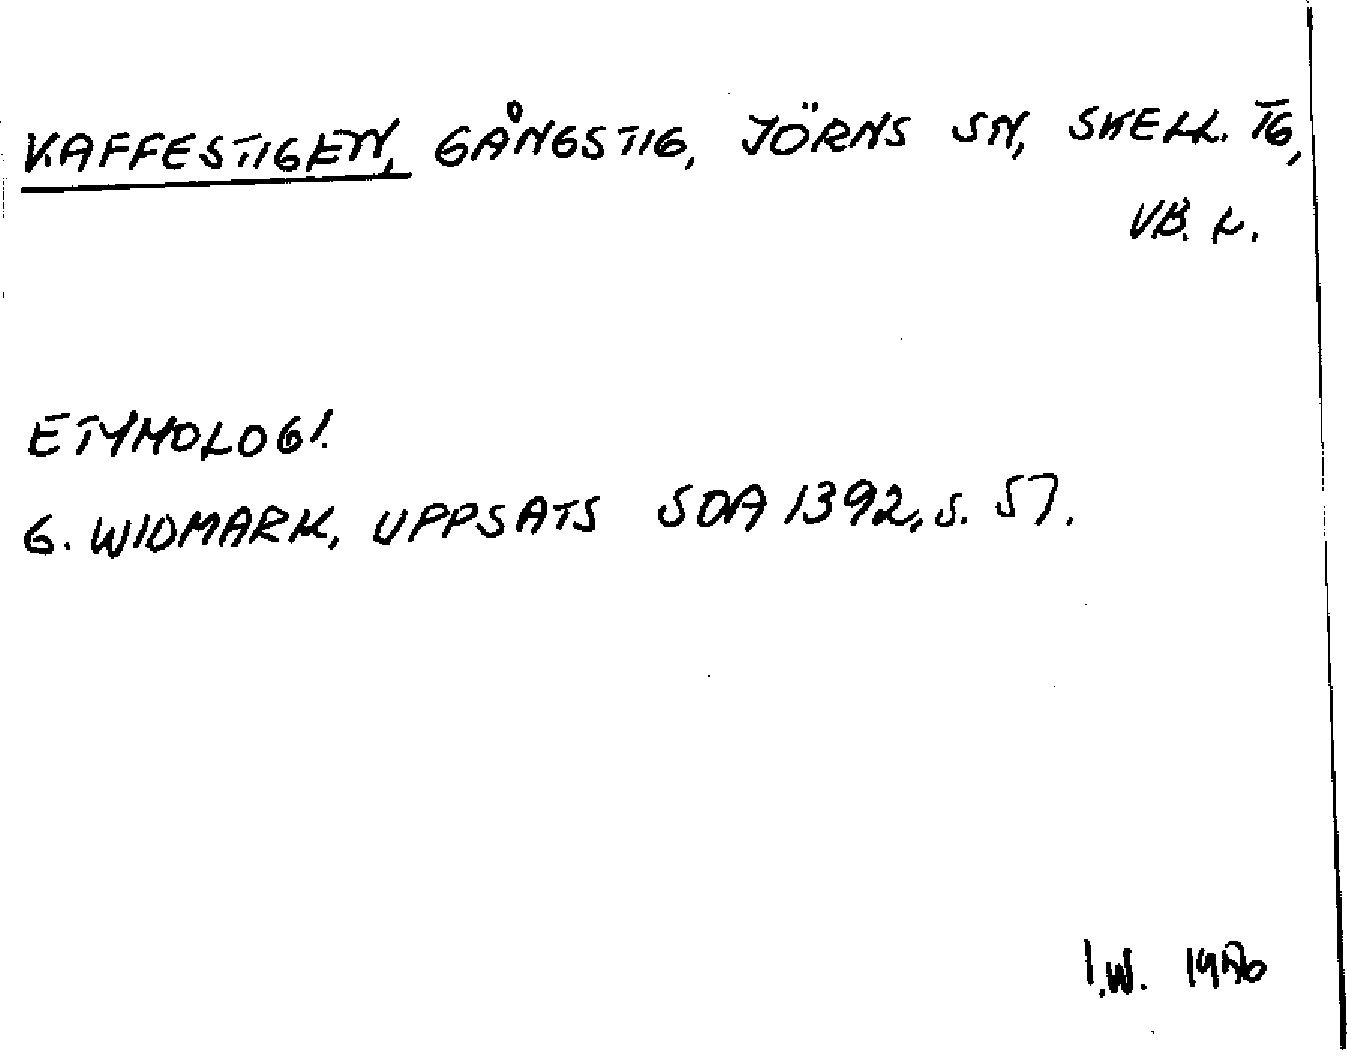 KAFFESTIGEN, GÅNGSTIG, JÖRNS SN, SKELL. TG,
VB. L.
ETYMOLOGI.
G. WIDMARK, UPPSATS SOA 1392, S. 57.
I.W.